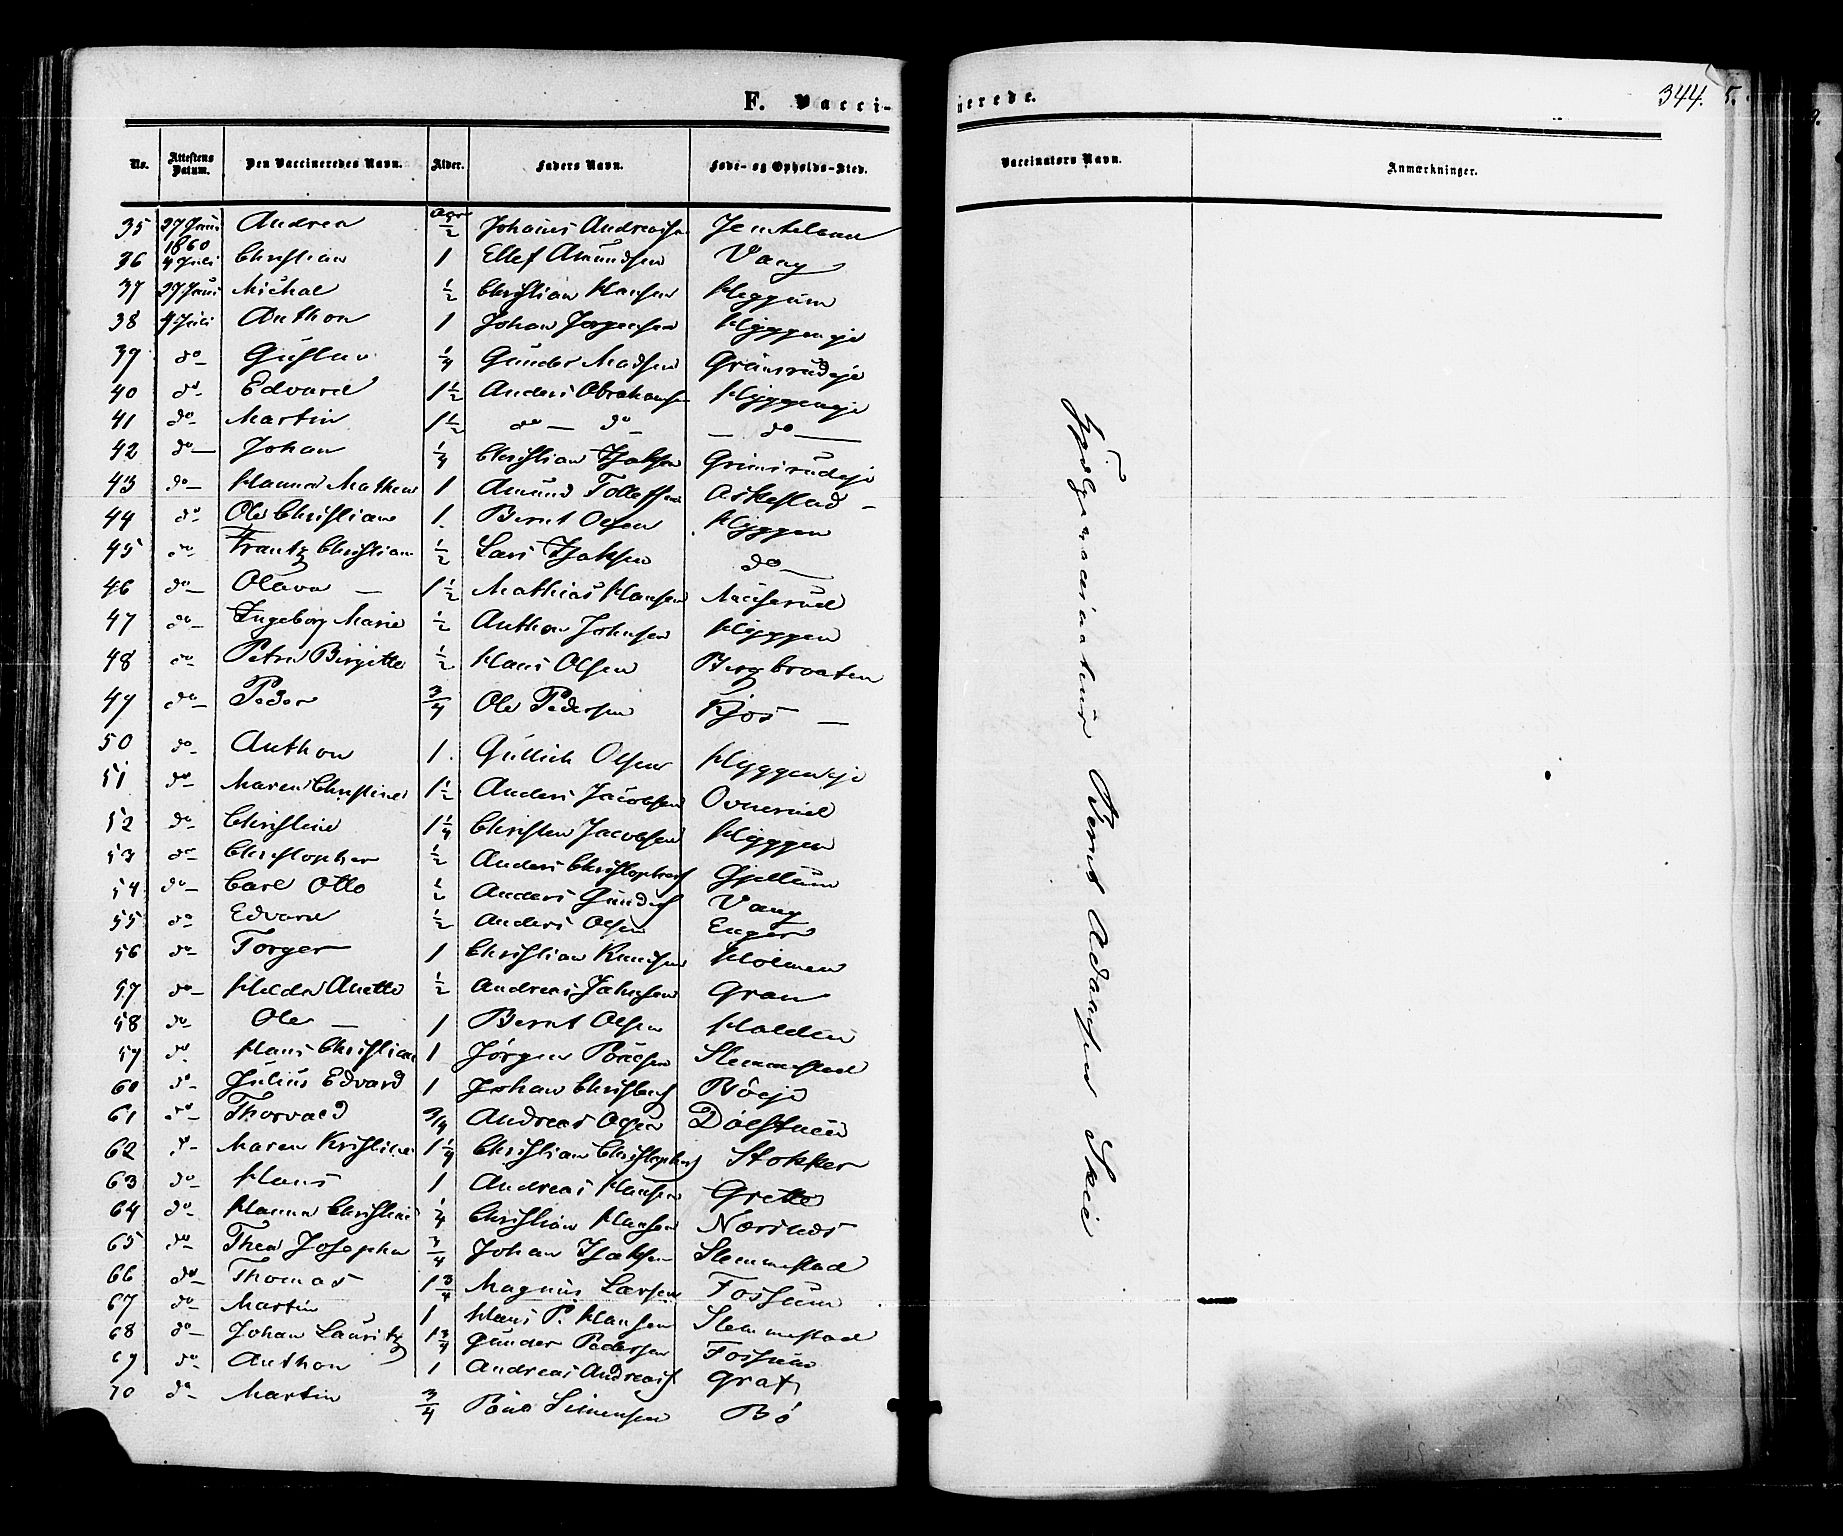 F. Vacci-
nerede.
344.
No. Attestens Datum. Den Vaccineredes Navn. Alder. Faders Navn. Føde- og Opholds-Sted. Vaccinators Navn. Anmærkninger.
35 27 Juni 1860 Andrea 1/2 Johanes Andreass
36 4 Juli Christian 1 Ellef Amundsen Vang
37 27 Juni Michal 1/2 Christian Hansen Heggum
38 4 Juli Anthon 1 Johan Jørgensen Hyggeneje
39 do Gustav 1/4 Gunder Madsen Grimsrudeje
40 do Edvard 1 1/2 Anders Abrahamsen Hyggeneje
41 do Martin 1 1/2 do do do
42 do Johan 1/4 Christian Isaksen Grimsrudeje
43 do Hanna Mathea 1 Amund Tollefsen Askestad
44 do Ole Christian 1. Bernt Olsen Hyggen
45 do Frantz Christian 1/2 Lars Isaksen do
46 do Olava 1 1/2 Mathias Hansen
47 do Ingeborg Marie 1/2 Anthon Johnsen Hyggen
48 do Petra Birgitte 1/2 Hans Olsen Bergbraaten
49 do Peder 3/4 Ole Pedersen Kjos
50 do Anthon 1. Gullich Olsen Hyggeneje
51 do Maren Christine 1 1/2 Anders Jacobsen Ovnerud
52 do Christine 1 1/4 Christen Jacobsen Hyggen
53 do Christopher 1/2 Anders Christophers Gjellum
54 do Carl Otto 1/2 Anders Gunders Vang
55 do Edvard 1/2 Anders Olsen Enger
56 do Torger 1 Christian Knudsen Holmen
57 do Helda Anette 1/2 Andreas Jahnsen Gran
58 do Ole 1 Bernt Olsen Halden
59 do Hans Christian 1 Jørgen Poulsen Slemmestad
60 do Julius Edvard 1 Johan Christens Böeje
61 do Thorvald 3/4 Andreas Olsen Dølstuen
62 do Maren Kristine 1 1/4 Christian Christophers Stokker
63 do Hans 1 Andreas Hansen Grette
64 do Hanna Christine 1/4 Christian Hansen Næsnæs
65 do Thea Josepha 3/4 Johan Isaksen Slemmestad
66 do Thomas 1 3/4 Magnus Larsen Fossum
67 do Martin 1 Hans P. Hansen Slemmestad
68 do Johan Lauritz 1 3/4 Gunder Pedersen Fossum
69 do Anthon 1 Andreas Andreass Grav
70 do Martin 3/4 Poul Simensen Bö
Hjelpevaccinateur Bernt Adamsen Skeie